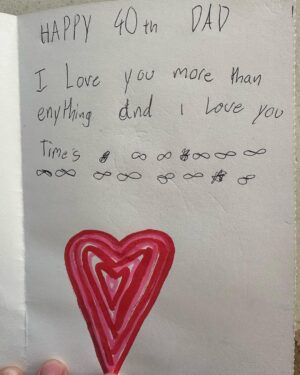 HAPPY 40th DAD
I Love you more than
enything and i Love you
Time's ∞ ∞ ∞ ∞ ∞ ∞
∞ ∞ ∞ ∞ ∞ ∞ ∞